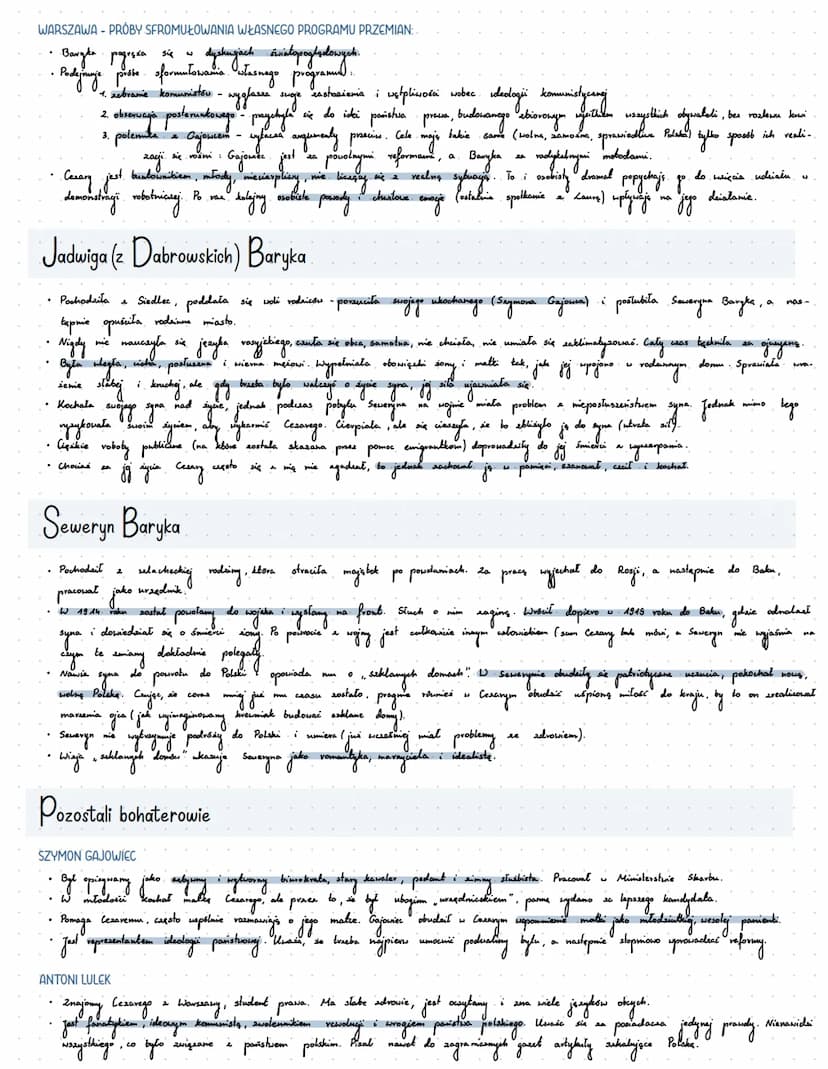 WARSZAWA - PRÓBY SFROMUŁOWANIA WŁASNEGO PROGRAMU PRZEMIAN:
• Baryka pogrąża się w dyskusjach światopoglądowych.
• Podejmuje próbę sformułowania własnego programu:
1. zebranie komunistów - wygłasza swoje zastrzeżenia i wątpliwości wobec ideologii komunistycznej
2. obserwacja posterunkowego - przychyla się do idei państwa prawa, budowanego zbiorowym wysiłkiem wszystkich obywateli, bez rozlewu krwi
3. polemika z Gajowcem - wytacza argumenty przeciw. Cele mają takie same (wolna, zamożna, sprawiedliwa Polska) tylko sposób ich reali-
zacji się różni: Gajowiec jest za powolnymi reformami, a Baryka za radykalnymi metodami.
• Cezary jest buntownikiem, młody, niecierpliwy, nie liczący się z realną sytuacją. To i osobisty dramat popychają go do wzięcia udziału w
demonstracji robotniczej. Po raz kolejny osobiste powody i chwilowe emocje (ostatnie spotkanie z Laurą) wpływają na jego działanie.
Jadwiga (z Dabrowskich) Baryka
• Pochodziła z Siedlec, poddała się woli rodziców - porzuciła swojego ukochanego (Szymona Gajowca) i poślubiła Seweryna Barykę, a nas-
tępnie opuściła rodzinne miasto.
• Nigdy nie nauczyła się języka rosyjskiego, czuła się obca, samotna, nie chciała, nie umiała się zaklimatyzować. Cały czas tęskniła za ojczyzną.
• Była uległa, cicha, posłuszna i wierna mężowi. Wypełniała obowiązki żony i matki tak, jak jej wpojono w rodzinnym domu. Sprawiała wra-
żenie słabej i kruchej, ale gdy trzeba było walczyć o życie syna, jej siła ujawniała się.
• Kochała swojego syna nad życie, jednak podczas pobytu Seweryna na wojnie miała problem z nieposłuszeństwem syna. Jednak mimo tego
ryzykowała swoim życiem, aby wykarmić Cezarego. Cierpiała, ale się cieszyła, że to zbliżyło ją do syna (utrata sił).
• Ciężkie roboty publiczne (na które została skazana przez pomoc emigrantkom) doprowadziły do jej śmierci z wyczerpania.
• Chociaż za jej życia Cezary często się z nią nie zgadzał, to jednak zachował ją w pamięci, szanował, czcił i kochał.
Seweryn Baryka
• Pochodził z szlacheckiej rodziny, która straciła majątek po powstaniach. Za pracą wyjechał do Rosji, a następnie do Baku,
pracował jako urzędnik.
• W 1914 roku został powołany do wojska i wysłany na front. Słuch o nim zaginął. Wrócił dopiero w 1919 roku do Baku, gdzie odnalazł
syna i dowiedział się o śmierci żony. Po powrocie z wojny jest całkowicie innym człowiekiem (sam Cezary tak mówi, a Seweryn nie wyjaśnia na
czym te zmiany dokładnie polegały.
• Namawia syna do powrotu do Polski i opowiada mu o „szklanych domach". W Sewerynie obudziły się patriotyczne uczucia, pokochał nową,
wolną Polskę. Czując, że coraz mniej już mu czasu zostało, pragnie również w Cezarym obudzić uśpioną miłość do kraju, by to on zrealizował
marzenia ojca (jak wyimaginowany krewniak budować szklane domy).
• Seweryn nie wytrzymuje podróży do Polski i umiera (już wcześniej miał problemy ze zdrowiem).
• Wizja „szklanych domów" ukazuje Seweryna jako romantyka, marzyciela i idealistę.
Pozostali bohaterowie
SZYMON GAJOWIEC
• Był opisywany jako sztywny i wytworny biurokrata, stary kawaler, pedant i zimny służbista. Pracował w Ministerstwie Skarbu.
• W młodości kochał matkę Cezarego, ale przez to, że był ubogim „urzędniczkiem", pannę wydano za lepszego kandydata.
• Pomaga Cezaremu, często wspólnie rozmawiają o jego matce. Gajowiec obudził w Cezarym wspomnienie matki jako młodziutkiej, wesołej panienki.
• Jest reprezentantem ideologii państwowej. Uważa, że trzeba najpierw umocnić podwaliny bytu, a następnie stopniowo wprowadzać reformy.
ANTONI LULEK
• Znajomy Cezarego z Warszawy, student prawa. Ma słabe zdrowie, jest oczytany i zna wiele języków obcych.
• Jest fanatykiem, ideowym komunistą, zwolennikiem rewolucji i wrogiem państwa polskiego. Uważa się za posiadacza jedynej prawdy. Nienawidzi
wszystkiego, co było związane z państwem polskim. Pisał nawet do zagranicznych gazet artykuły szkalujące Polskę.